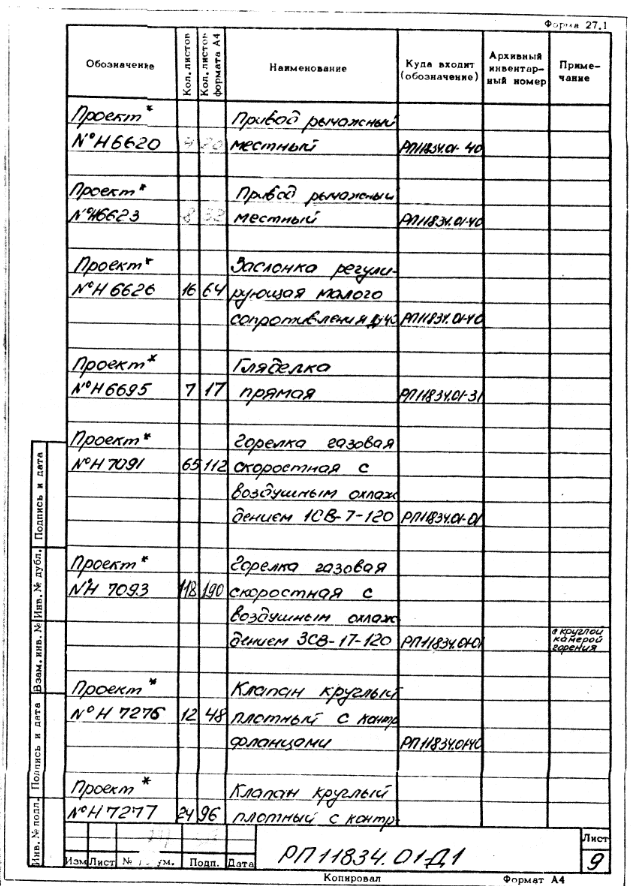 Форма 27.1
Обозначение Кол. листов Кол. листов формата А4 Наименование Куда входит (обозначение) Архивный инвентар- ный номер Приме- чание
Проект* Привод рычажный
№ Н6620 местный РП11834.01-40
Проект* Привод рычажный
№Н6623 8 32 местный РП11834.01-40
Проект* Заслонка регули-
№ Н 6626 16 64 рующая малого
сопротивления РП11834.01-40
Проект* Гляделка
№ Н6695 7 17 прямая РП11834.01-31
Проект* Горелка газовая
№ Н 7091 65 112 скоростная с
воздушным охлаж
дением 1СВ-7-120 РП11834.01-01
Проект* Горелка газовая
№Н 7093 118 190 скоростная с
воздушным охлаж
дением 3СВ-17-120 РП11834.01-01 с круглой камерой горения
Проект* Клапан круглый
№ Н 7276 12 48 плотный с контр
фланцами РП11834.01-40
Проект* Клапан круглый
№ Н 7277 24 96 плотный с контр-
Инв. № подл. Подпись и дата Взам. инв. № Инв. № дубл. Подпись и дата
Изм Лист Подп. Дата
РП11834.01Д1
Лист
9
Копировал Формат А4